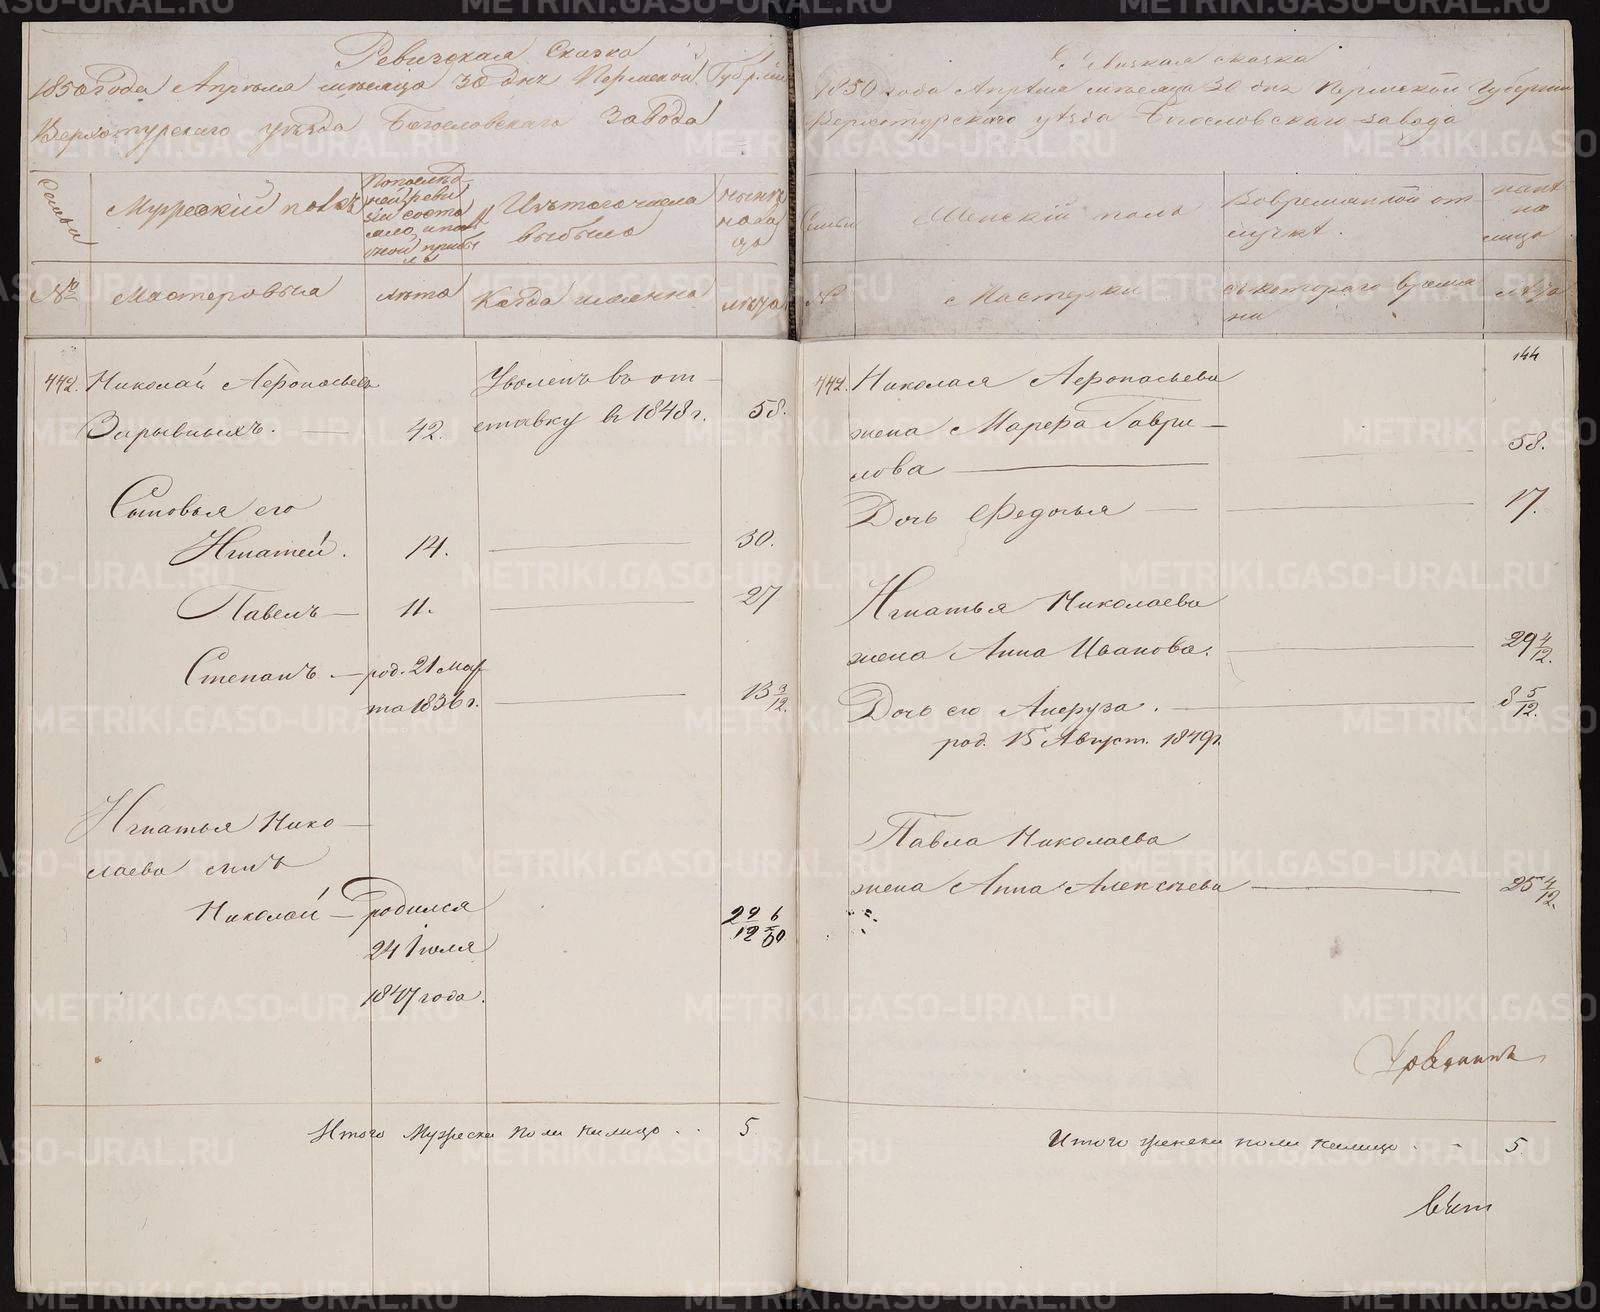 Ревизская Сказка
1850 года Апрѣля мѣсяца 30 дня Пермской Губерніи
Верхотурскаго уѣзда Богословскаго завода
Семьи
Мужескій полъ
По послѣд-
ней реви
зіи состо
яло, и по
оной прибы
ло
Изъ того числа
выбыло
Нынѣ
на ли
цо
№
Мастеровыя
лѣта
Когда именно
лѣта
442. Николай Афонасьевъ
Зарывныхъ. — 42.
Уволенъ въ от-
ставку в 1848 г. 58.
Сыновья его
Игнатей. 14. — 30.
Павелъ — 11. — 27
Степанъ — род. 21 мар
та 1836 г. — 13 3/12.
Игнатья Нико-
лаева сынъ
Николай — родился 2 9/12 6/30
24 Іюля
1847 года.
Итого Мужеска пола на лицо . . 5
Ревизская сказка
1850 года Апрѣля мѣсяца 30 дня Пермской Губерніи
Верхотурскаго уѣзда Богословскаго завода
Семьи
Женскій полъ
Во временной от
лучкѣ.
на
лицо
№
Мастерки
съ котораго време
ни
лѣта
144
442. Николая Афонасьева
жена Марфа Гаври-
лова — 58.
Дочь Федосья — 17.
Игнатья Николаева
жена Анна Иванова. — 29 4/12.
Дочь его — 8 5/12.
род. 15 Август. 1849 г.
Павла Николаева
жена Анна Алексѣева — 25 4/12.
Итого женска пола на лицо . - 5.